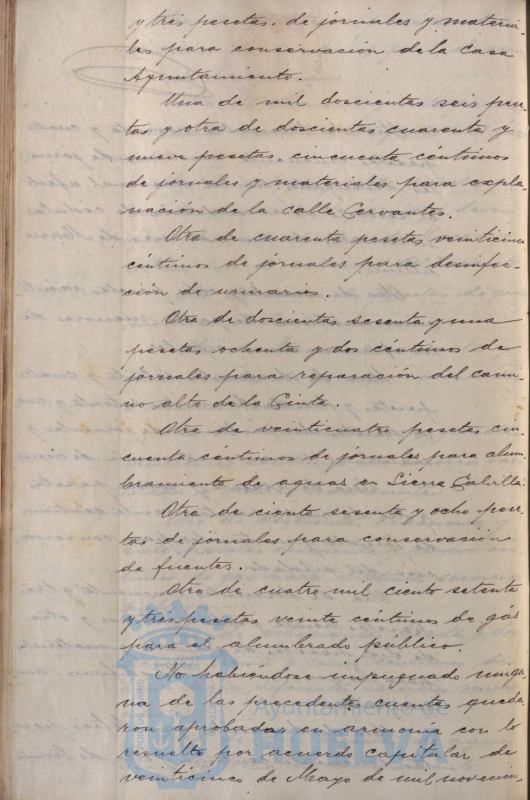 y tres pesetas. de jornales y materia-
les para conservación de la Casa
Ayuntamiento.
Una de mil doscientas seis pese-
tas y otra de doscientas cuarenta y
nueve pesetas. cincuenta céntimos
de jornales y materiales para expla-
nación de la calle Cervantes.
Otra de cuarenta pesetas veinticinco
céntimos de jornales para desinfec-
ción de urinarios.
Otra de doscientas sesenta y una
pesetas ochenta y dos céntimos de
jornales para reparación del cami-
no alto de la Cinta.
Otra de veinticuatro pesetas cin-
cuenta céntimos de jornales para alum-
bramiento de aguas en Sierra
Otra de ciento sesenta y ocho pese-
tas de jornales para conservación
de fuentes.
Otra de cuatro mil ciento setenta
y tres pesetas veinte céntimos de gas
para el alumbrado público.
No habiéndose impugnado ningu-
na de las precedentes cuentas queda-
ron aprobadas en armonía con lo
resuelto por acuerdo capitular de
veinticinco de Mayo de mil novecien
Ayuntamiento de
HUELVA